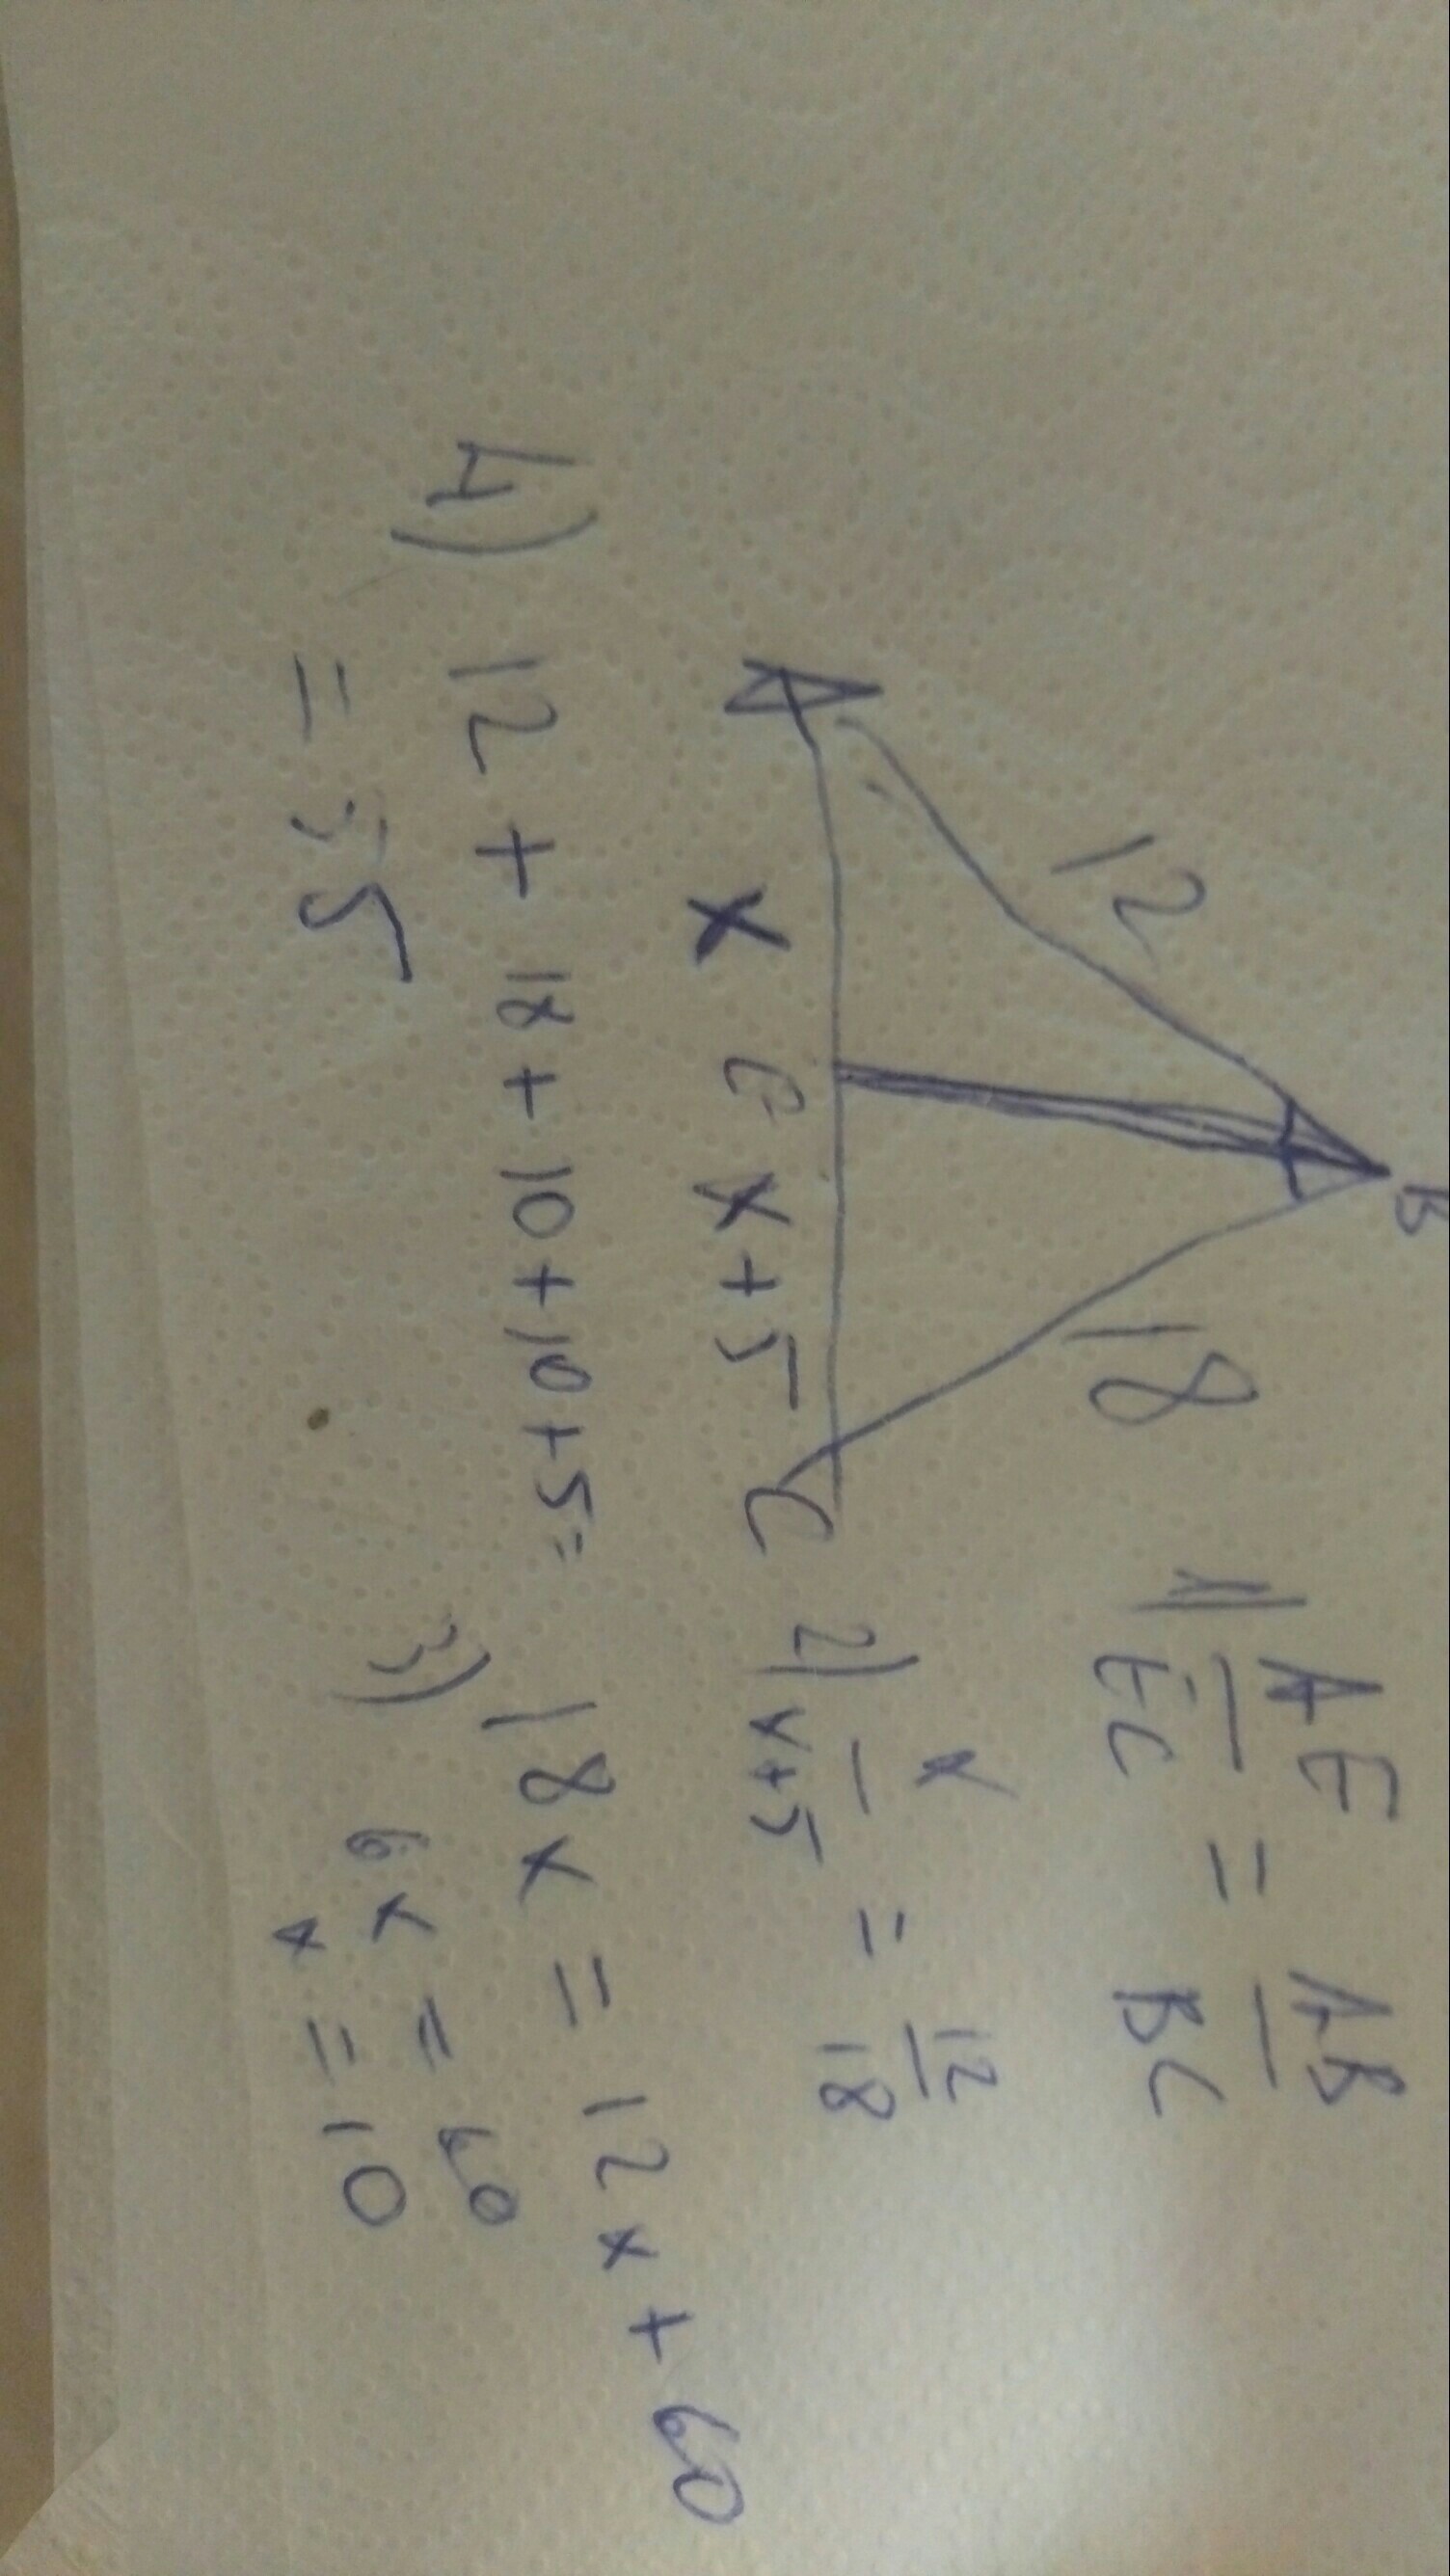 B
12
18
A
x
E
x+5
C
1) AE/EC = AB/BC
2) x/x+5 = 12/18
3) 18x = 12x + 60
6x = 60
x = 10
4) 12 + 18 + 10 + 10 + 5 =
= 55